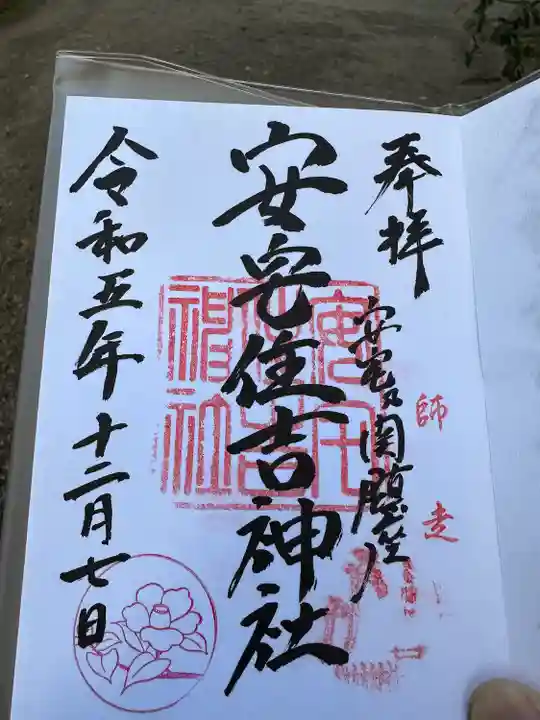 奉拝
師走
安宅乃関鎮座
安宅住吉神社
令和五年十二月七日